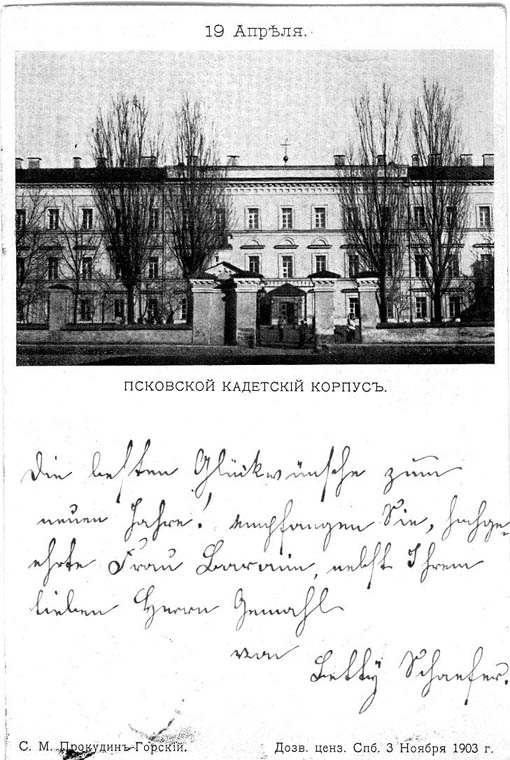 19 Апрѣля.
ПСКОВСКОЙ КАДЕТСКІЙ КОРПУСЪ.
Die besten Glückwünsche zum
neuen Jahre! empfangen Sie, hochge-
ehrte Frau Baronin, nebst Ihrem
lieben Herrn Gemahl
von
Betty Schaefer.
С. М. Прокудинъ-Горскій.
Дозв. ценз. Спб. 3 Ноября 1903 г.